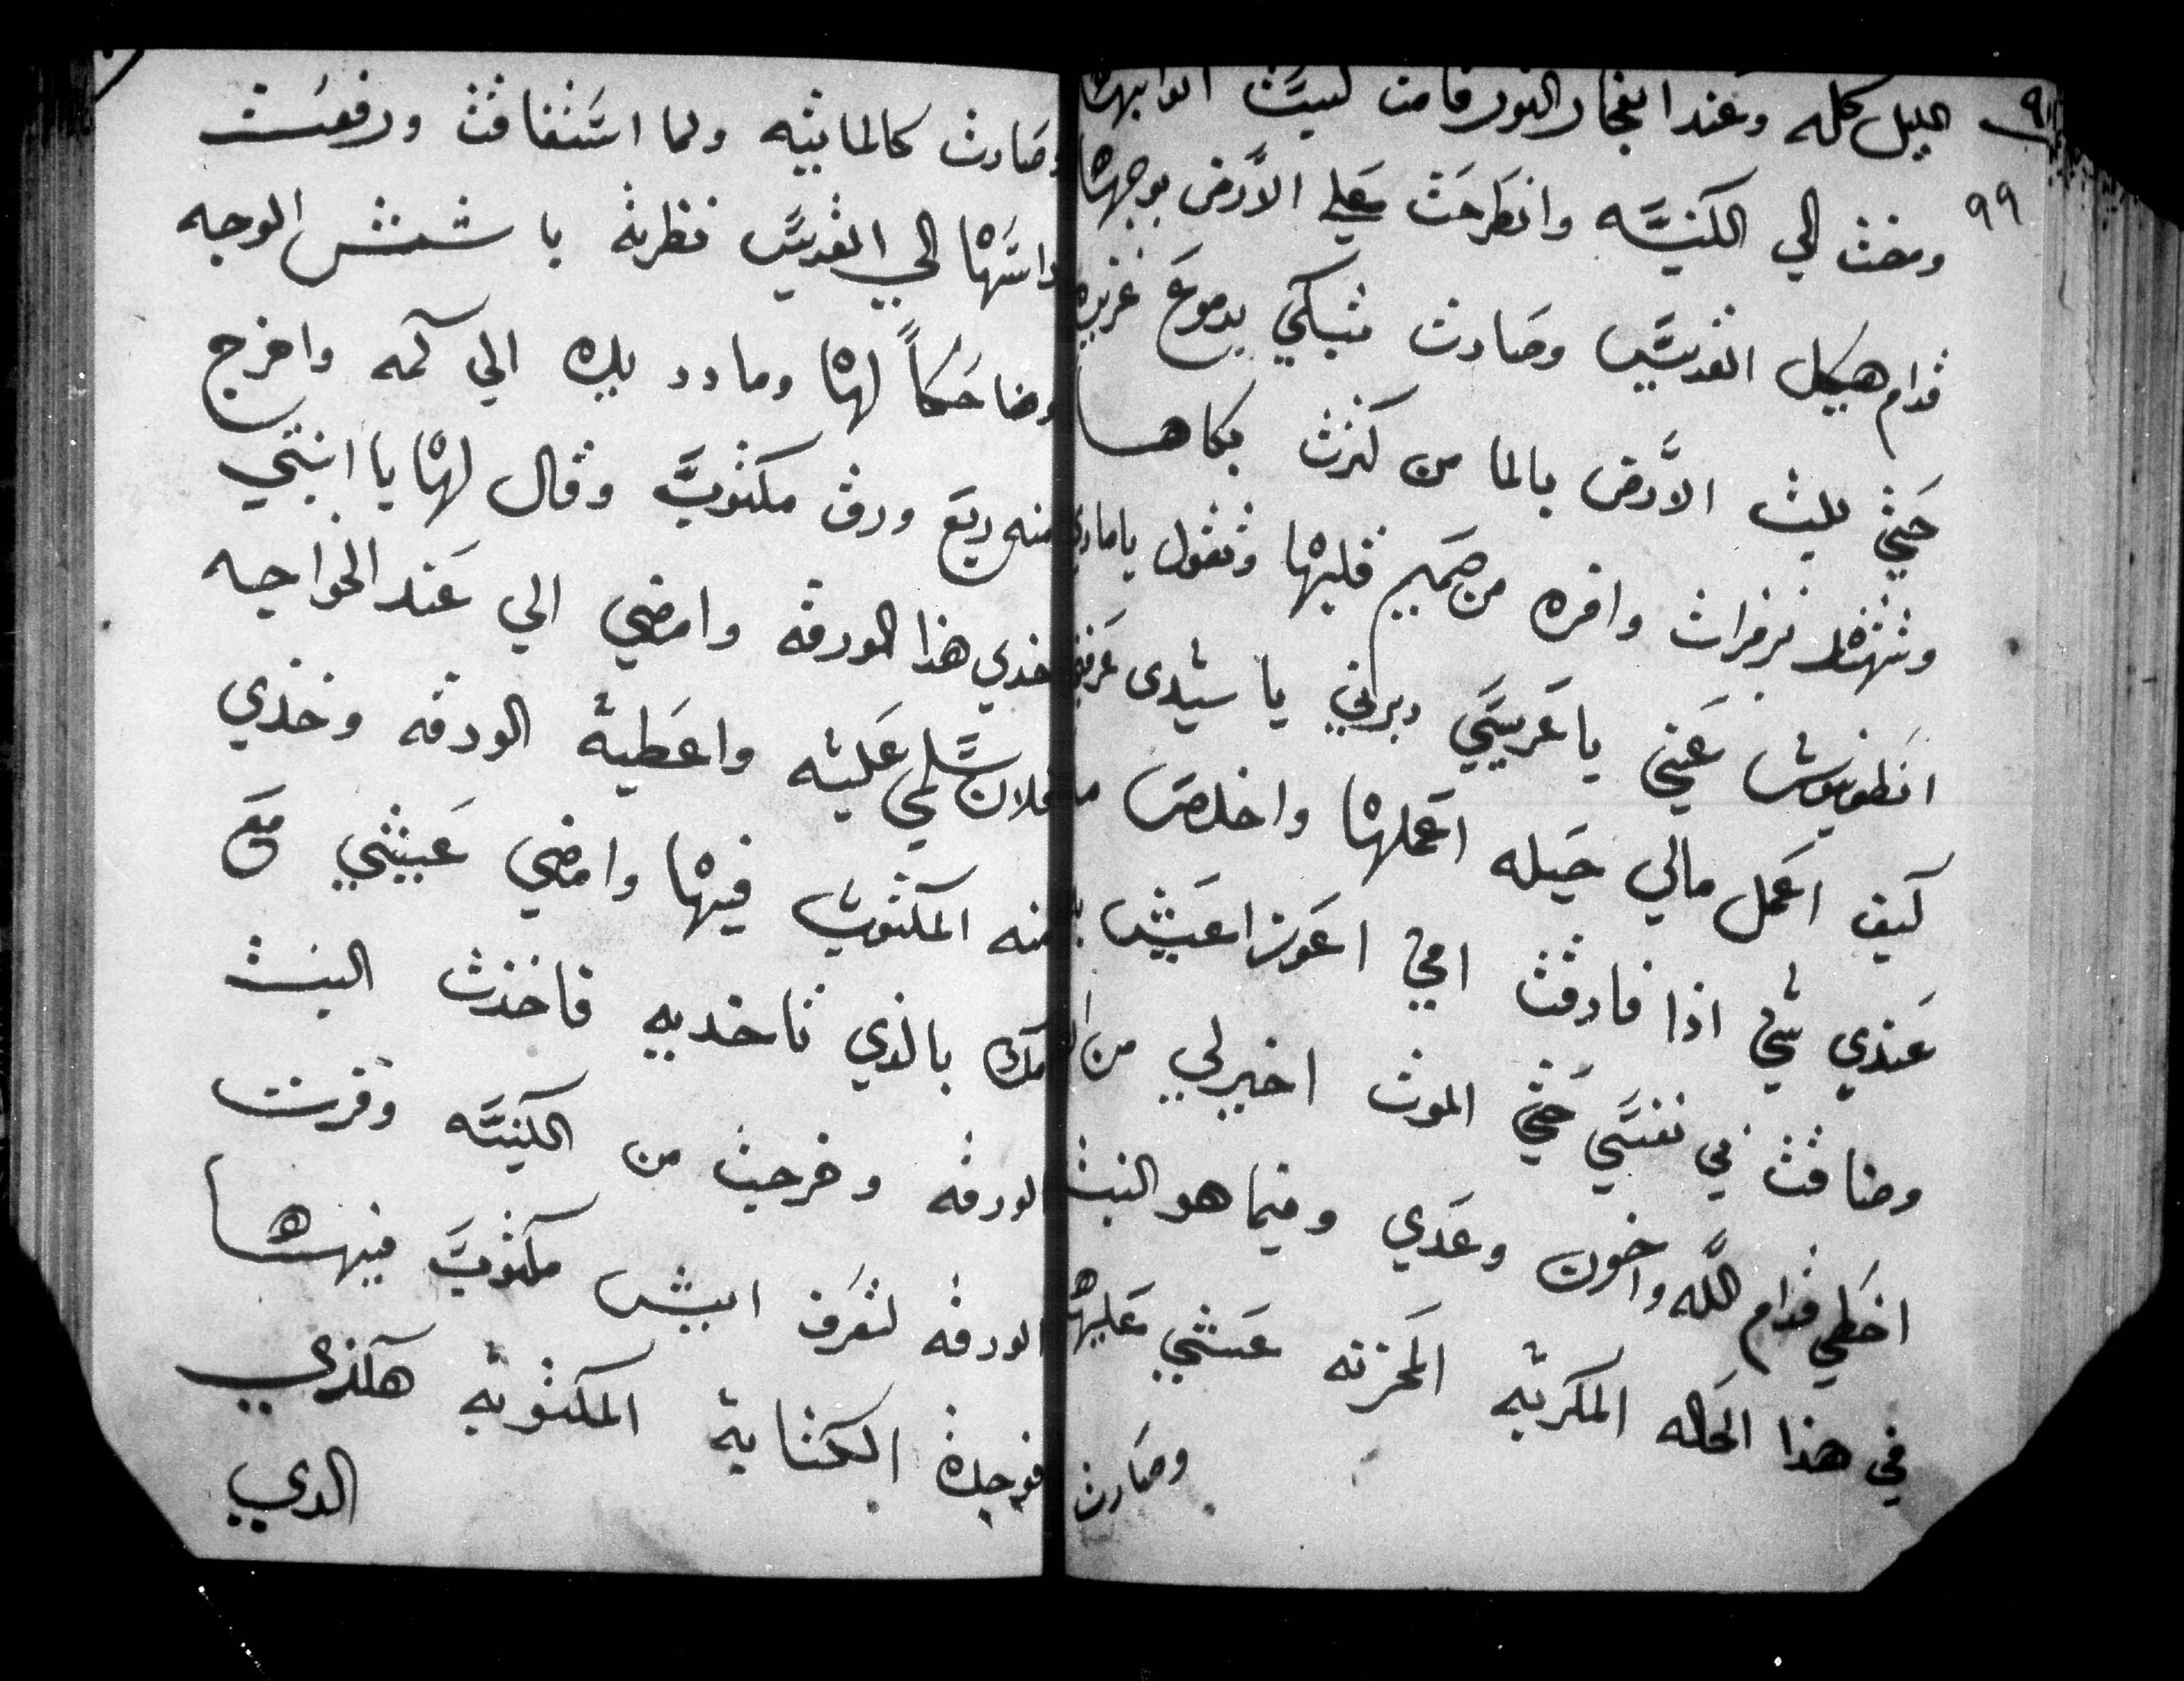 الليل كله وعند انفجار النور قامت لبست اتوابها
٩٩
ومضت الي الكنيسه وانطرحت علي الارض بوجهها
قدام هيكل القديس وصارت تبكي بدموع غزيره
حتي بلت الارض بالما من كترت بكاها
وتتنهد بزفرات وافره من صمير قلبها وتقول يا ماري
انطونيوس عني يا عريسي دبرني يا سيدى عرفني
كيف اعمل مالي حيله اعملها واخلص ما
عندي شي اذا فارقت امي اعوز اعيش
وضاقت في نفسي حتي الموت اخير لي من ان
اخطي قدام الله واخون وعدي وفيما هو البنت
في هذا الحاله المكربه المحزنه غشي عليها
وصارت
وصارت كالمايته ولما استفاقت ورفعت
راسها الي القديس نظرته باشش الوجه
وضاحكاً لها ومادد يده الي كمه واخرج
منه ربع ورق مكتوب وقال لها يا ابنتي
خذي هذا الورقه وامضي الي عند الخواجه
فلان سلمي عليه واعطيه الورقه وخذي
منه المكتوب فيها وامضي عيشي مع
امك بالذي تاخديه فاخذت البنت
الورقه وخرجت من الكنيسه وقرت
الورقه لتعرف ايش مكتوب فيها
فوجدة الكتابة المكتوبه هكذي
الدي